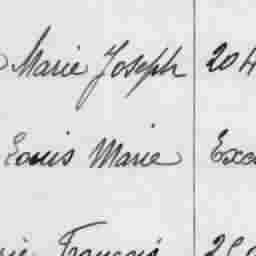 Marie Joseph 204
Louis Marie Exc
François